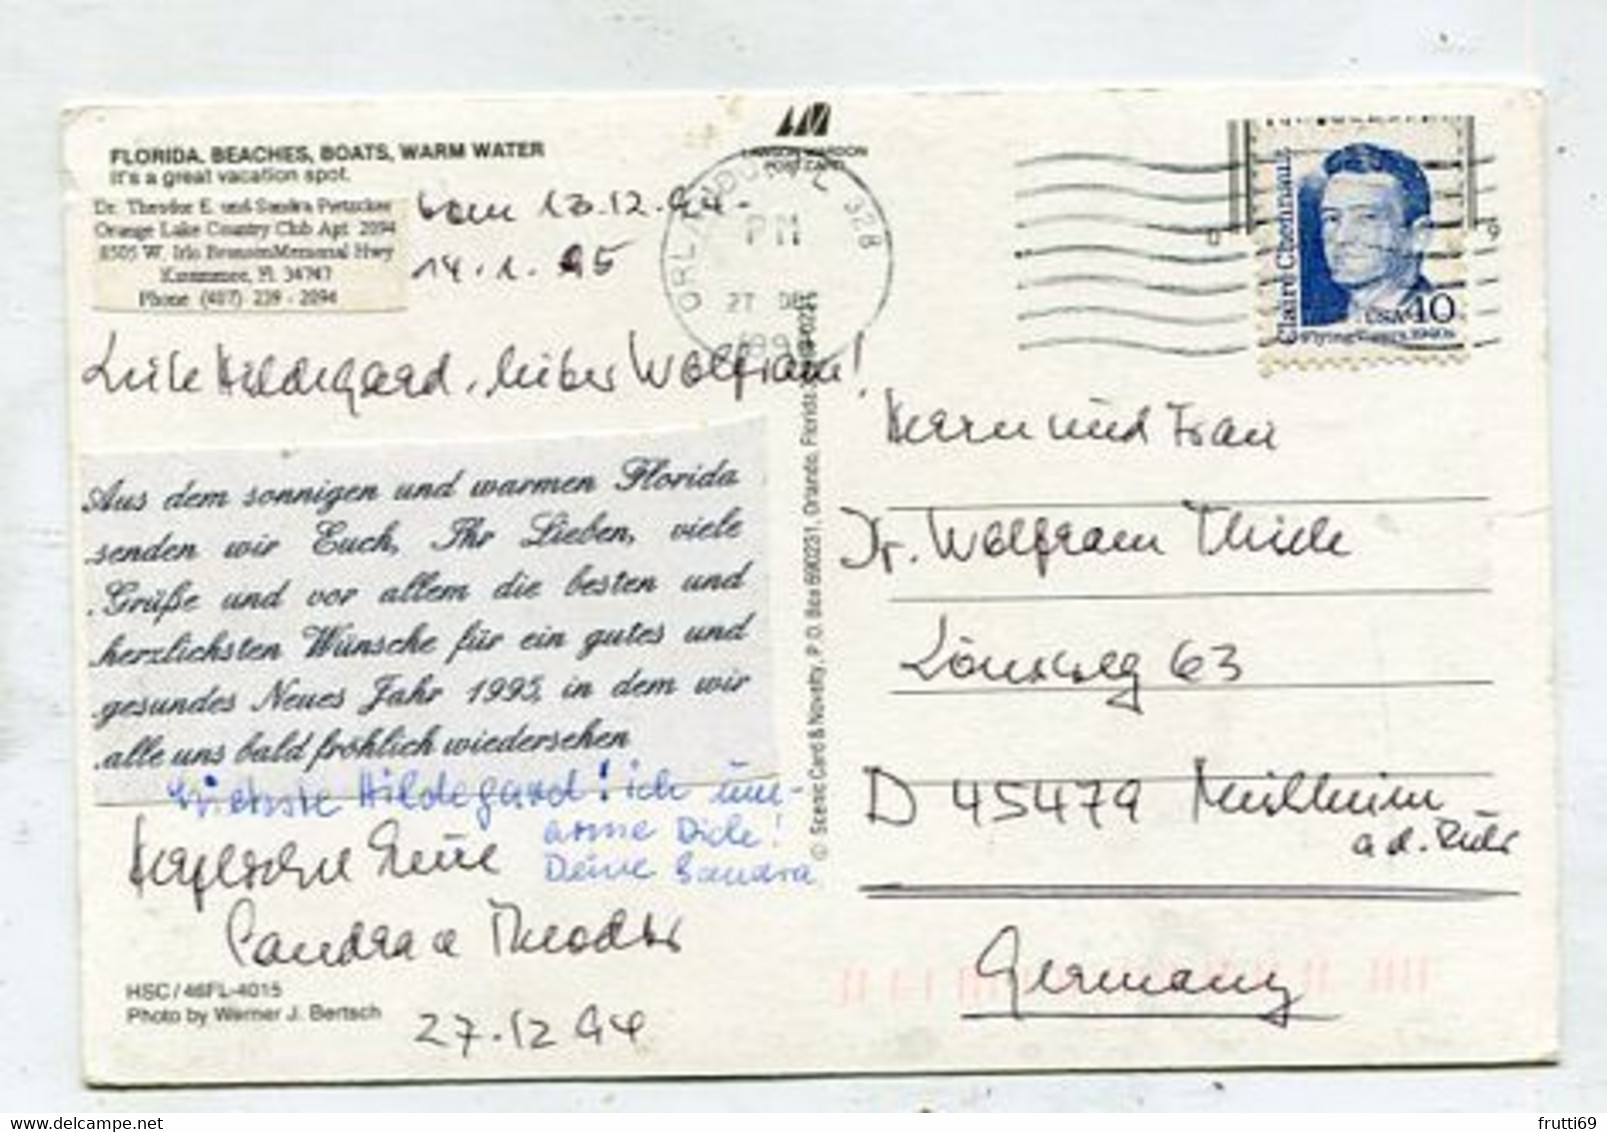 FLORIDA. BEACHES, BOATS, WARM WATER
It's a great vacation spot.
Dr. Theodor E. und Sandra Pietzcker
Orange Lake Country Club Apt. 2094
8505 W. Irlo BronsonMemorial Hwy
Kissimmee, Fl. 34747
Phone (407) 239 - 2094
vom 13.12.94 -
14.1.95
POST CARD
ORLANDO FL 328
PM
27 DEC
Clair Chennault
USA 40
Flying Tigers, 1940s
Liebe Hildegard, lieber Wolfram!
Aus dem sonnigen und warmen Florida
senden wir Euch, Ihr Lieben, viele
Grüße und vor allem die besten und
herzlichsten Wünsche für ein gutes und
gesundes Neues Jahr 1995, in dem wir
alle uns bald fröhlich wiedersehen
Liebste Hildegard! ich um-
arme Dich!
Deine Sandra
Herzlichst Eure
Sandra u Theodor
27.12.94
HSC/46FL-4015
Photo by Werner J. Bertsch
© Scenic Card & Novelty, P.O. Box 690231, Orlando, Florida
Herrn und Frau
Dr. Wolfram Thiele
Lönsweg 63
D 45479 Mülheim
a.d. Ruhr
Germany
frutti69